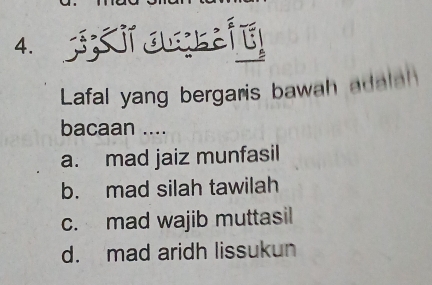 4. إِنَّآ أَعْطَيْنٰكَ الْكَوْثَرَ
Lafal yang bergaris bawah adalah
bacaan ....
a. mad jaiz munfasil
b. mad silah tawilah
c. mad wajib muttasil
d. mad aridh lissukun